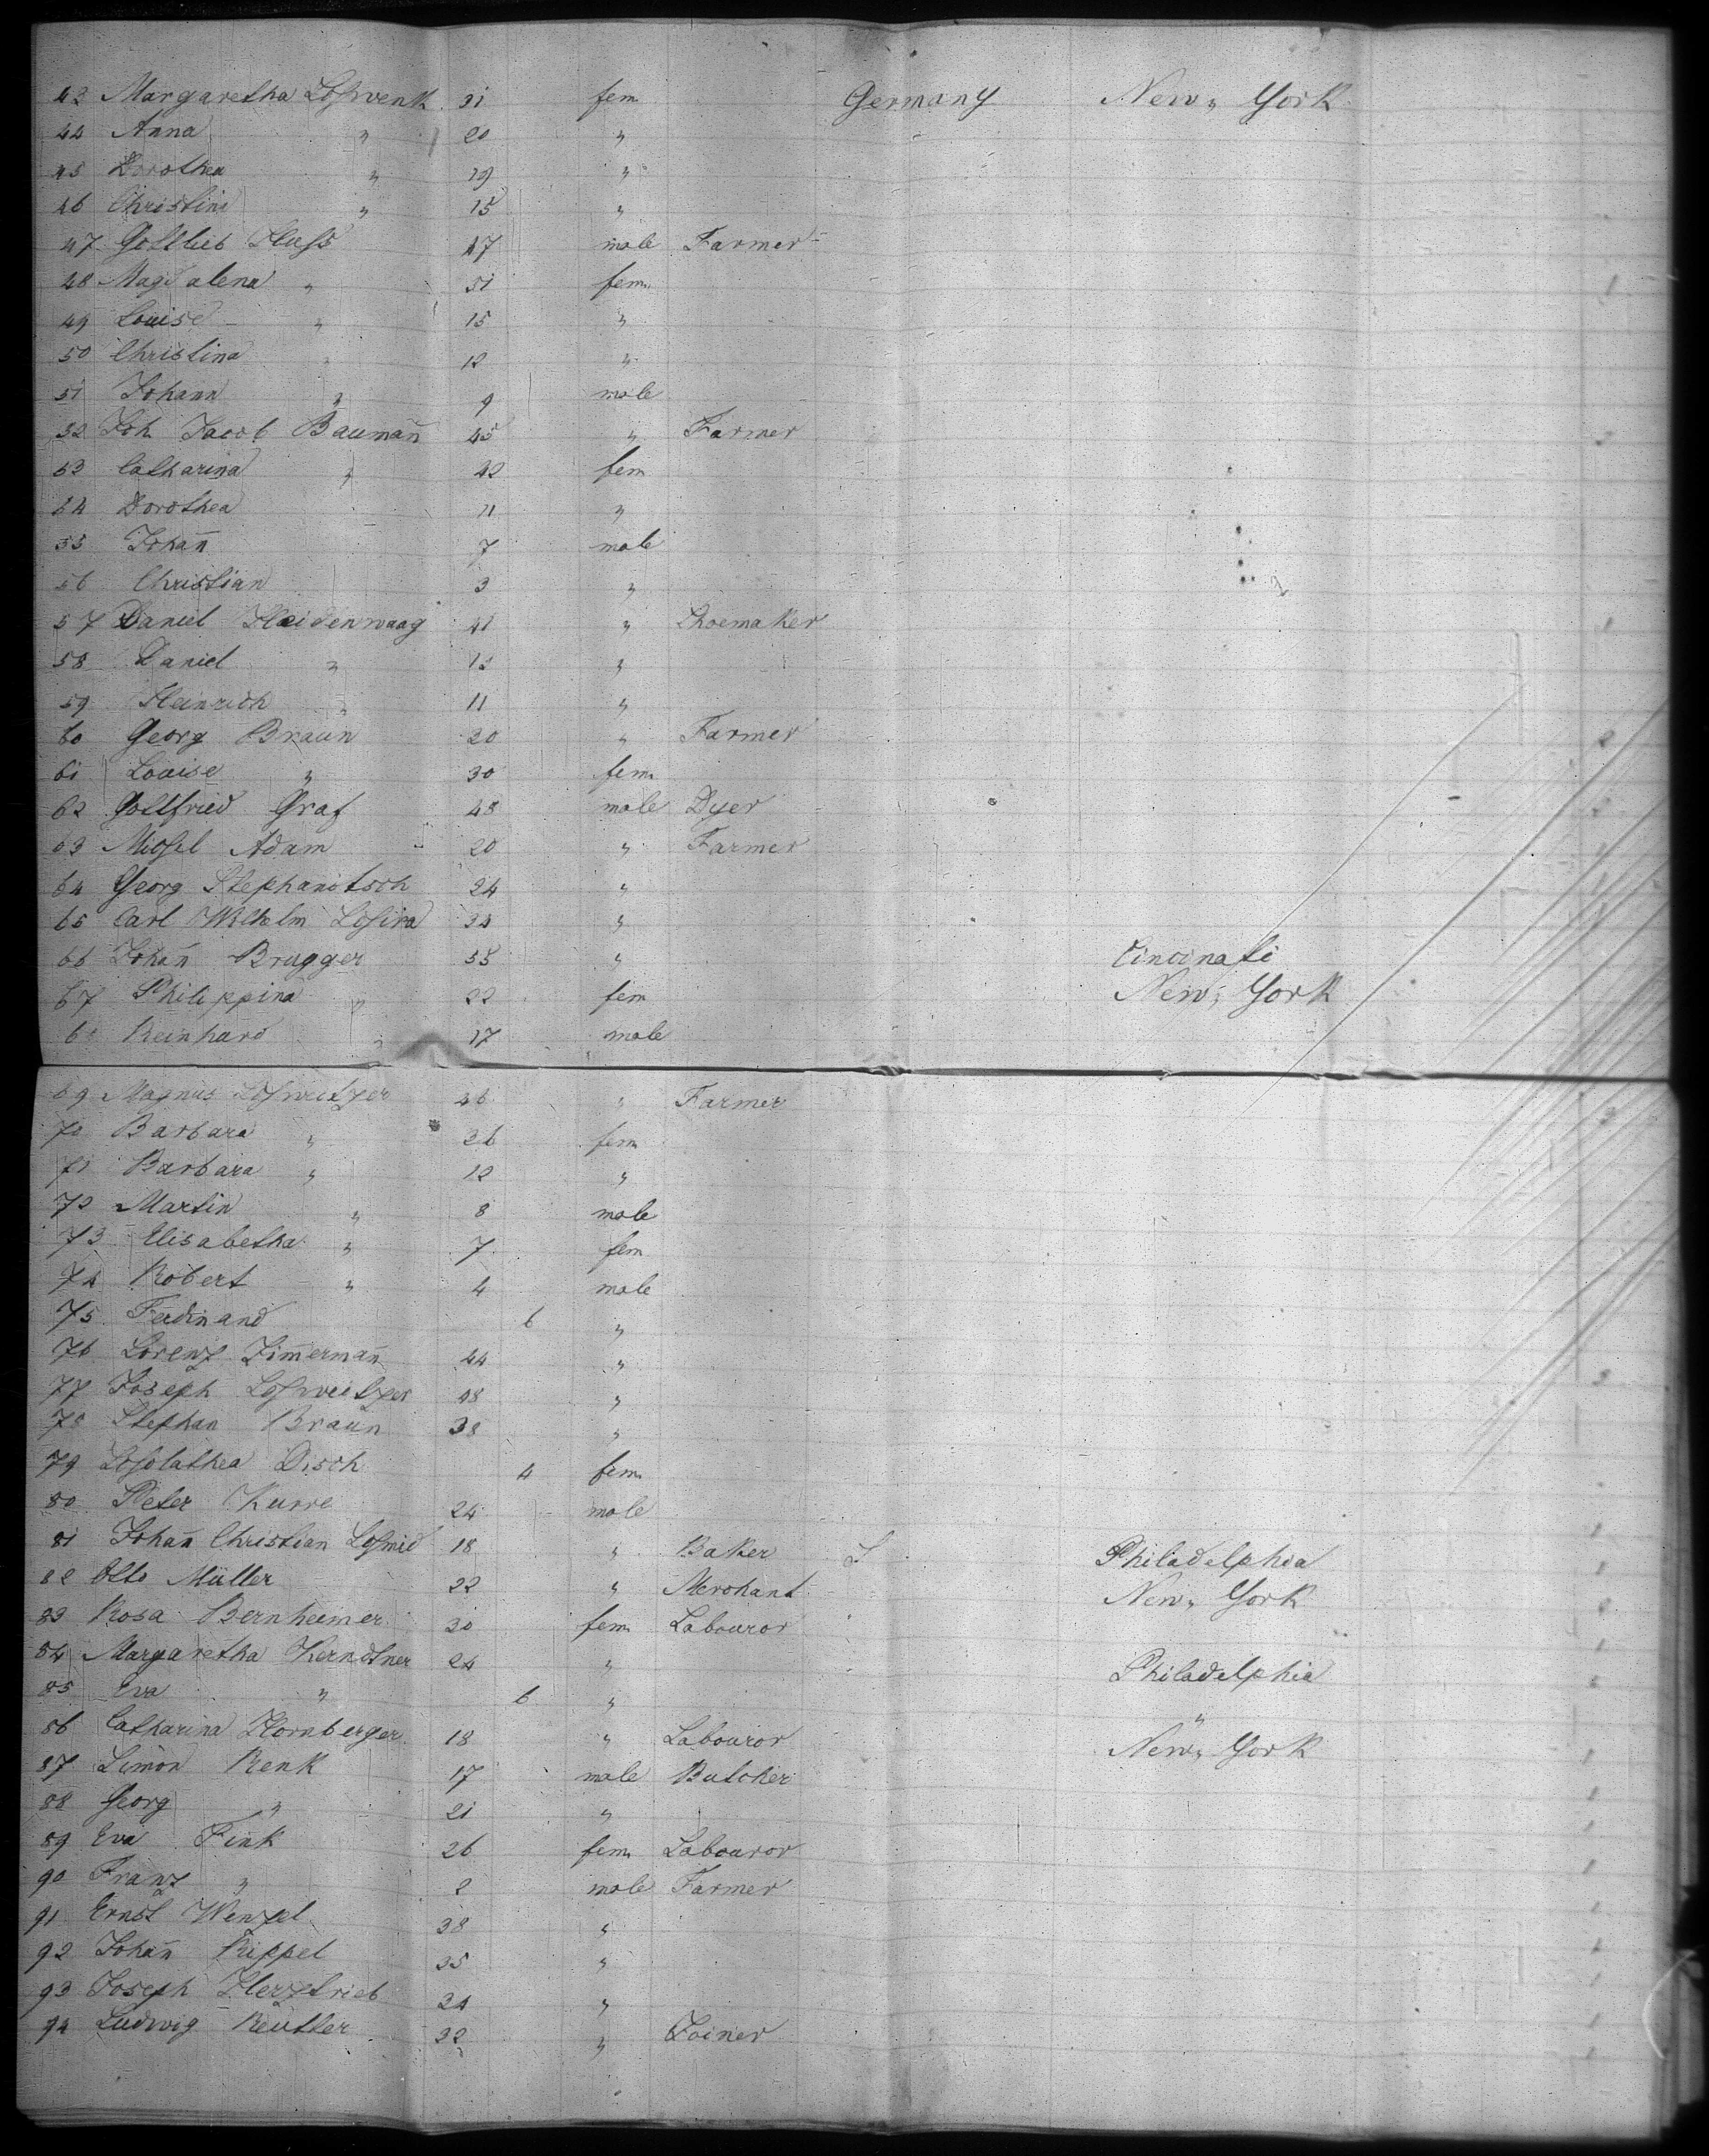 43 Margaretha Schwenk 31 fem Germany New York
44 Anna " 20 "
45 Dorothea " 19 "
46 Christina " 15 "
47 Gottlieb Huss 47 male Farmer
48 Magdalena " 51 fem.
49 Louise " 15 "
50 Christina " 12 "
51 Johann " 9 male
52 Joh. Jacob Baumañ 45 " Farmer
53 Catharina " 42 fem
54 Dorothea 11 "
55 Johañ 7 male
56 Christian 3 "
57 Daniel Heidenwaag 41 " Shoemaker
58 Daniel " 12 "
59 Heinrich " 11 "
60 Georg Braun 20 " Farmer
61 Louise " 30 fem.
62 Gottfried Graf 48 male Dyer
63 Michel Adam 20 " Farmer
64 Georg Stephanotsch 24 "
65 Carl Wilhelm 34 "
66 Johañ Brugger 55 " Cincinati
67 Philippina " 22 fem New York
68 Reinhard " 17 male
69 Magnus Schweitzer 46 " Farmer
70 Barbara " 36 fem
71 Barbara " 12 "
72 Martin " 8 male
73 Elisabetha " 7 fem
74 Robert " 4 male
75 Ferdinand 6 "
76 Lorenz Zim̄ermañ 44 "
77 Joseph Schweitzer 48 "
78 Stephan Braun 38 "
79 Disch 4 fem.
80 Peter 24 male
81 Johañ Christian Schmid 18 " Baker Philadelphia
82 Otto Müller 22 " Merchant New York
83 Rosa Bernheimer 30 fem Labouror
84 Margaretha Kerndtner 24 " Philadelphia
85 Eva " 6 " "
86 Catharina Hornberger 18 " Labouror New York
87 Simon Renk 17 male Butcher
88 Georg " 21 "
89 Eva Fink 26 fem. Labouror
90 Franz " 2 male Farmer
91 Ernst Wenzel 38 "
92 Johañ Rippel 35 "
93 Joseph Herztrieb 24 "
94 Ludwig Reutter 32 " Joiner